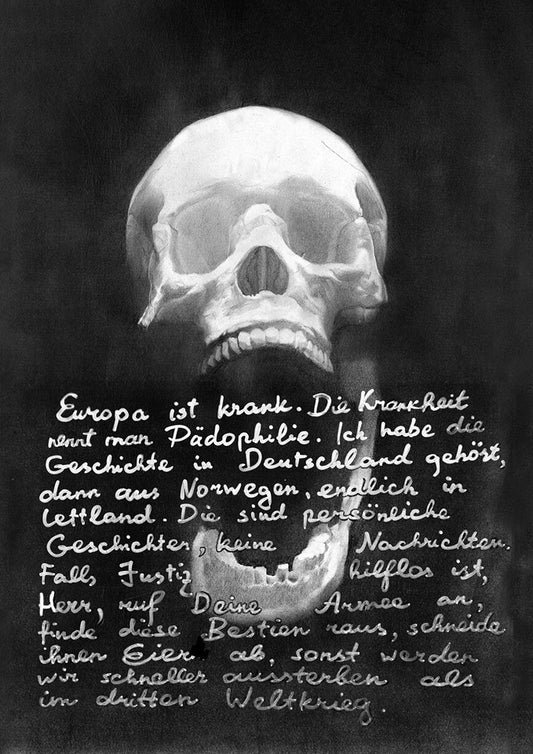 Europa ist krank. Die Krankheit
nennt man Pädophilie. Ich habe die
Geschichte in Deutschland gehört,
dann aus Norwegen, endlich in
Lettland. Die sind persönliche
Geschichten, keine Nachrichten.
Falls Justiz hilflos ist,
Herr, ruf Deine Armee an,
finde diese Bestien raus, schneide
ihnen Eier ab, sonst werden
wir schneller aussterben als
im dritten Weltkrieg.